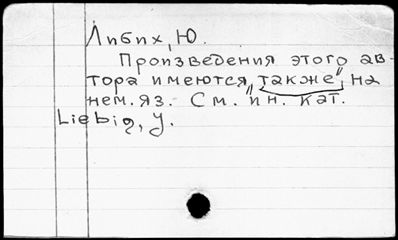 Либих, Ю.
Произведения этого ав-
тора имеются "также" на
нем. яз. См. ин. кат.
Liebig, J.